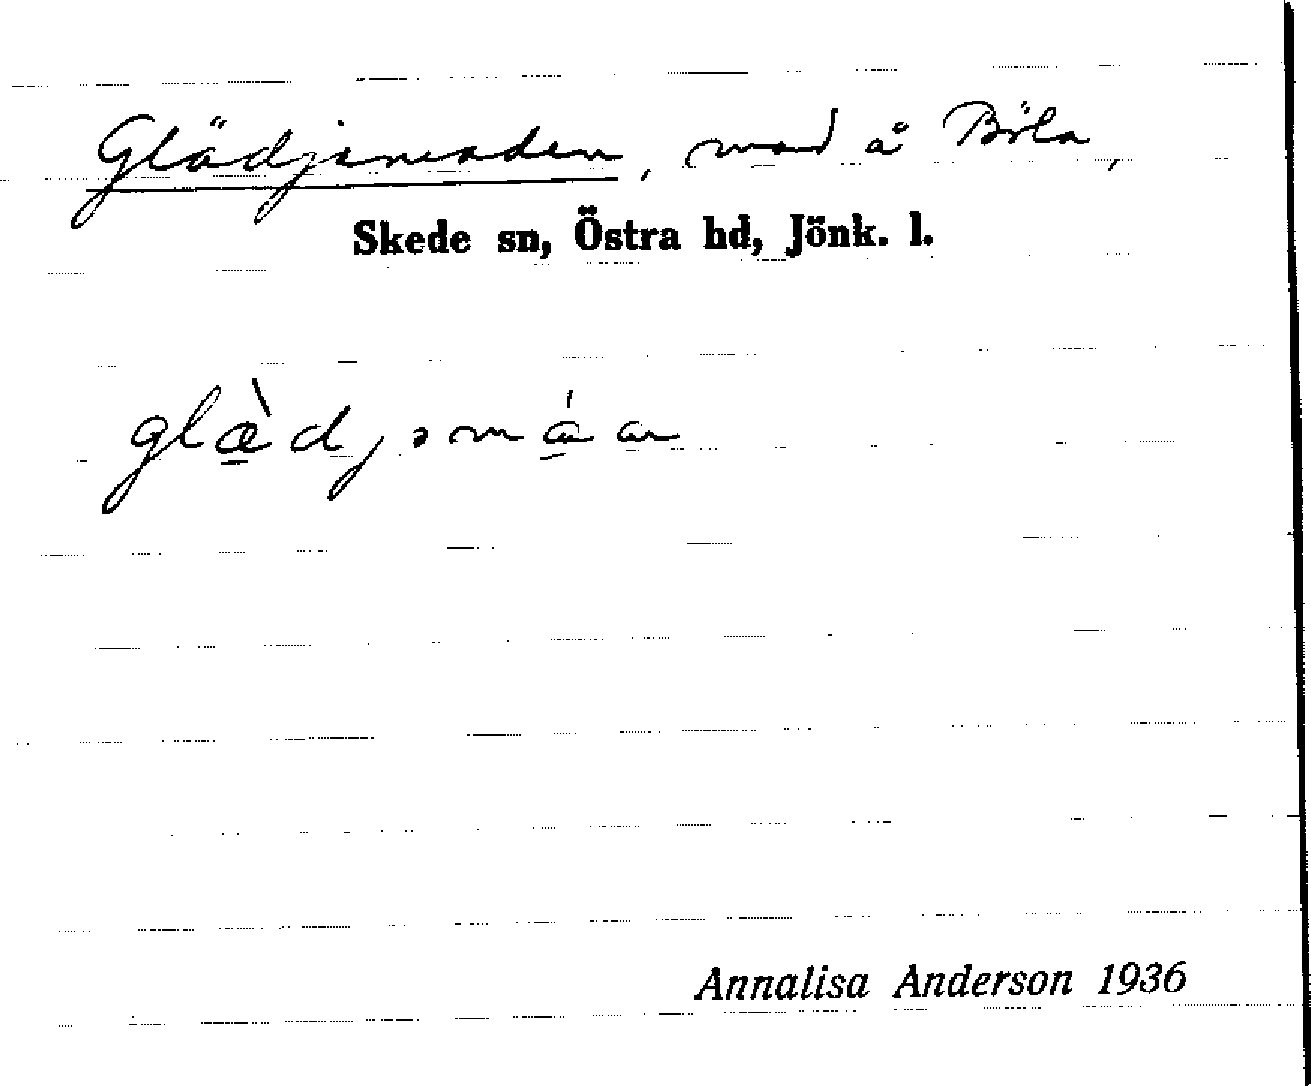 Glädjimaden, mad å Böla,
Skede sn, Östra hd, Jönk. l.
glæ̀djəmáan
Annalisa Anderson 1936